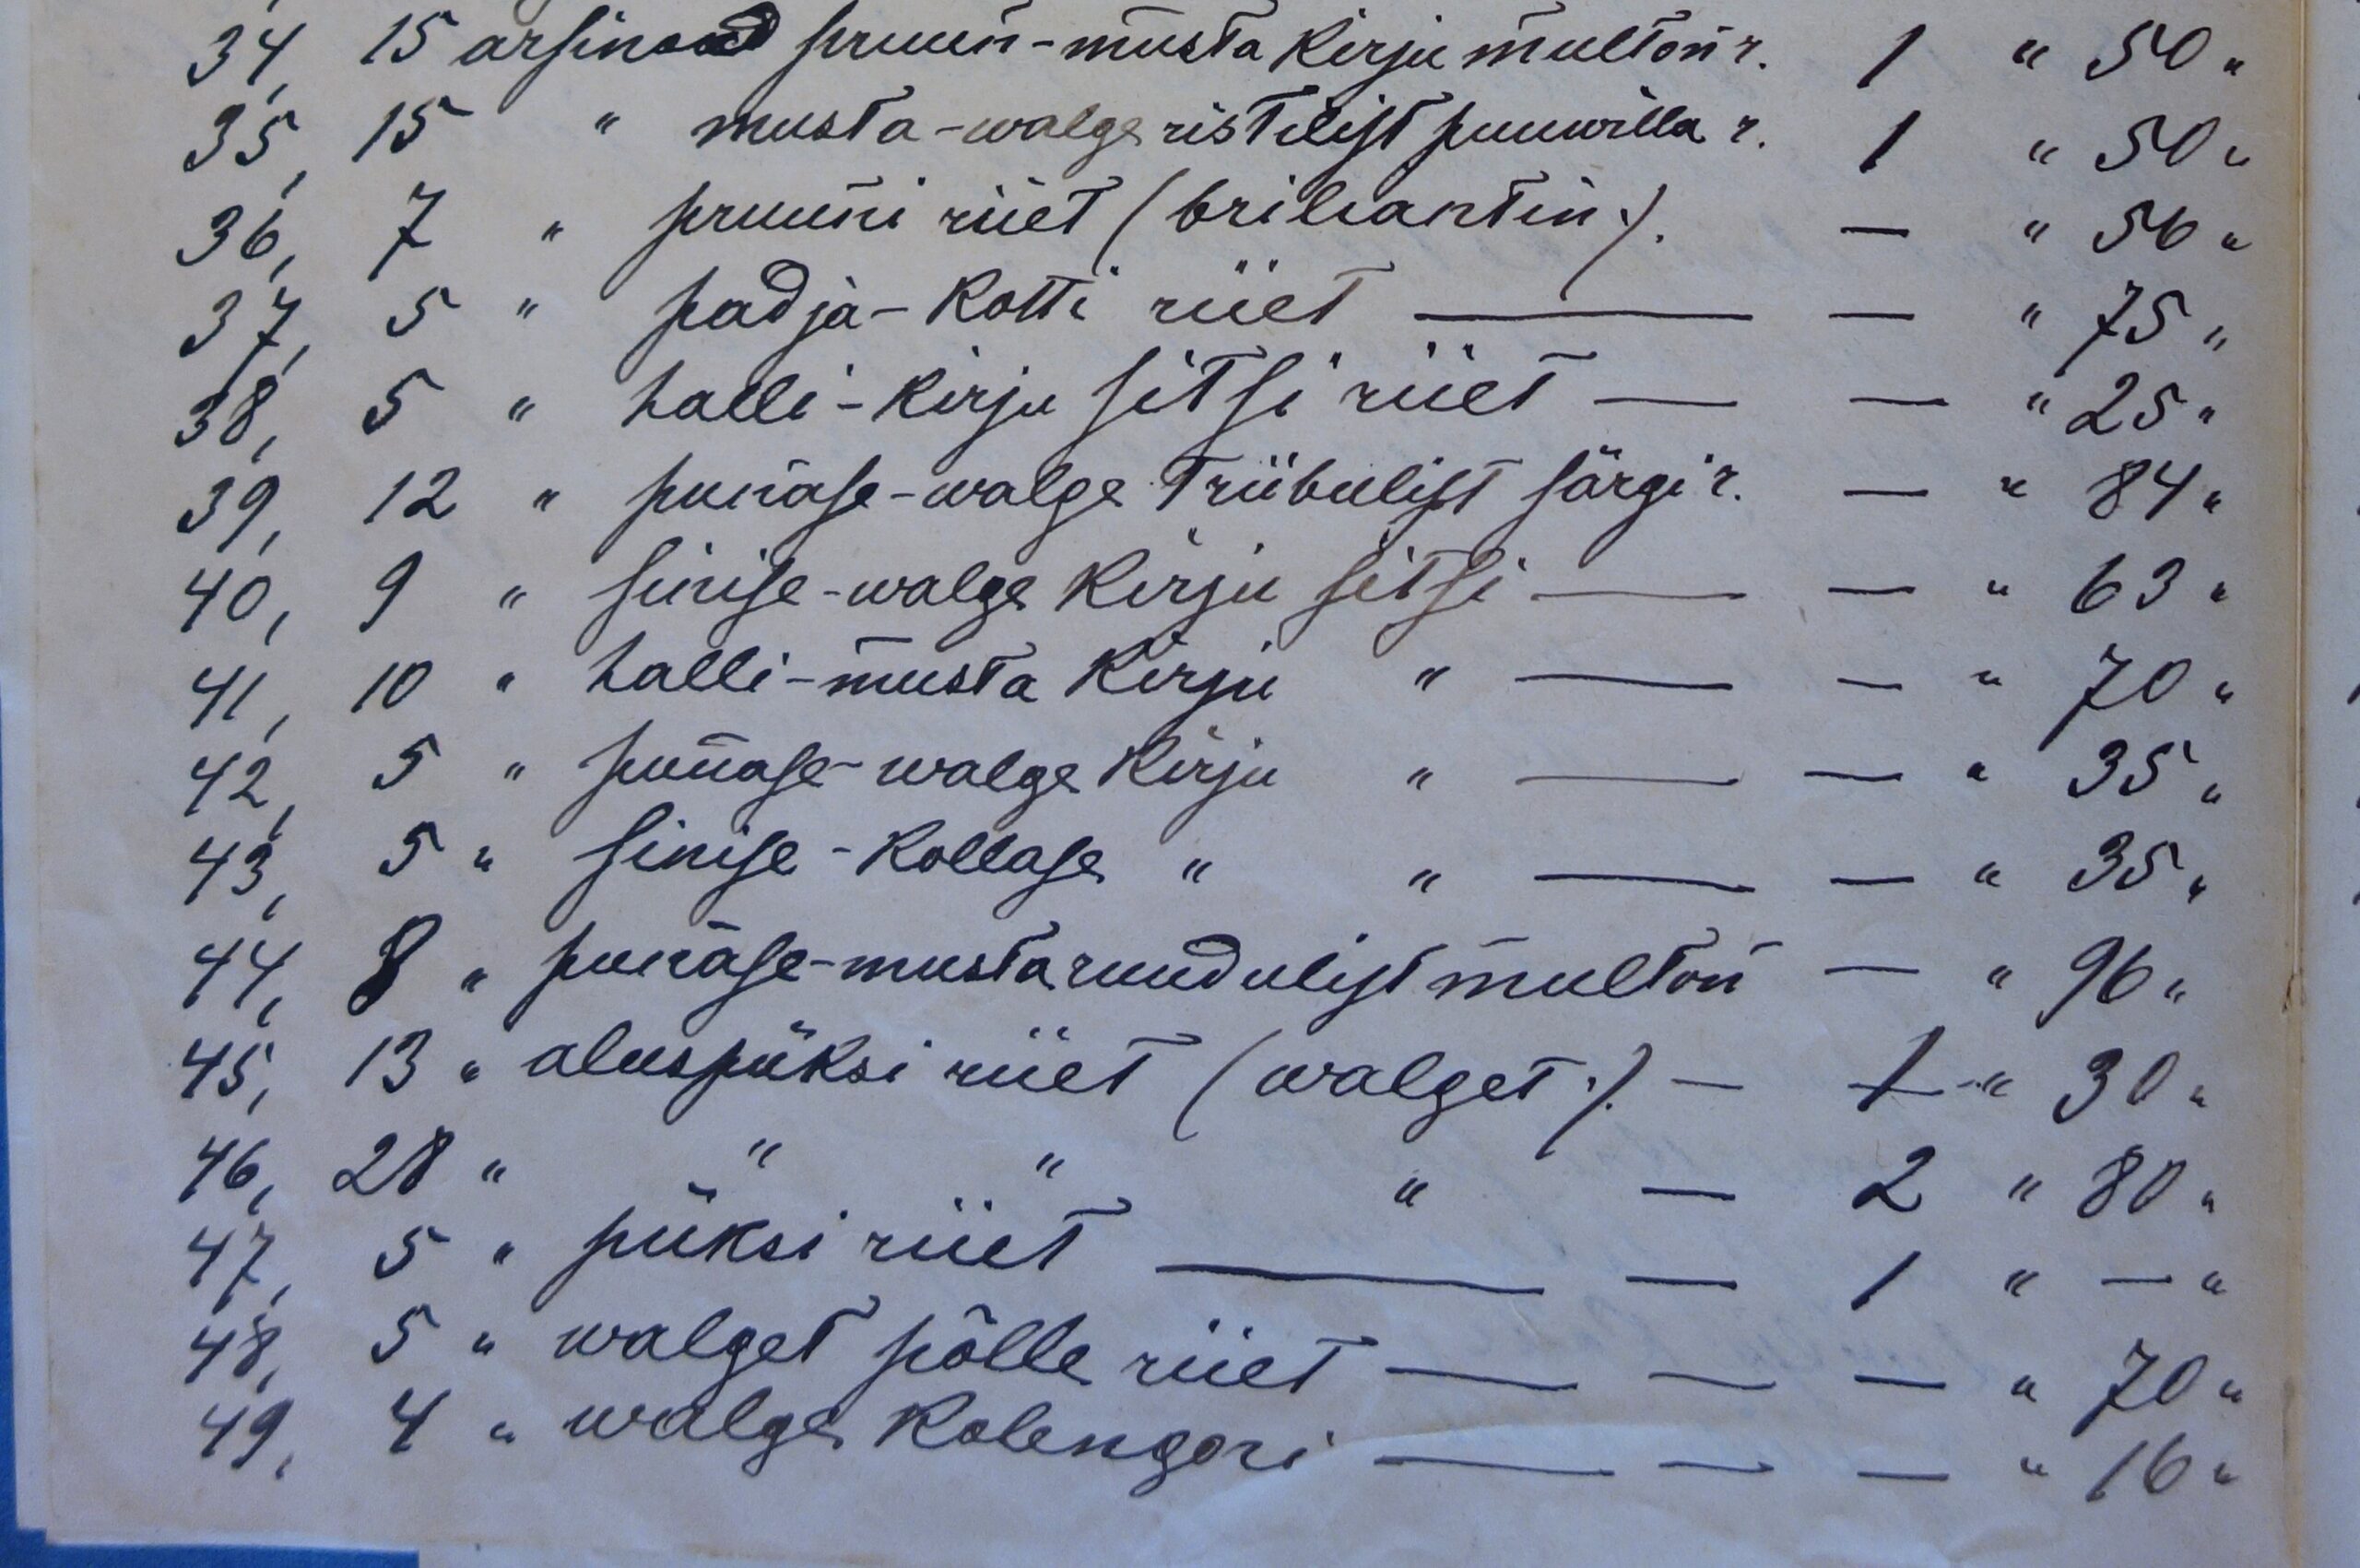 34, 15 arsinad pruun-musta kirju multon r. 1 " 50 "
35, 15 " musta-walge ristilist puuwilla r. 1 " 50 "
36, 7 " pruuni riiet (briliantin:). — " 56 "
37, 5 " padja-kotti riiet — — " 75 "
38, 5 " halli-kirju sitsi riiet — — " 25 "
39, 12 " punase-walge triibulist särgi r. — " 84 "
40, 9 " sinise-walge kirju sitsi — — " 63 "
41, 10 " halli-musta kirju " — — " 70 "
42, 5 " punase-walge kirju " — — " 35 "
43, 5 " sinise-kollase " " — — " 35 "
44, 8 " punase-musta ruudulist multon — " 96 "
45, 13 " aluspüksi riiet (walget:). — 1 " 30 "
46, 28 " " " " — 2 " 80 "
47, 5 " püksi riiet — — 1 " — "
48, 5 " walget põlle riiet — — — " 70 "
49, 4 " walge kolengori — — — " 16 "